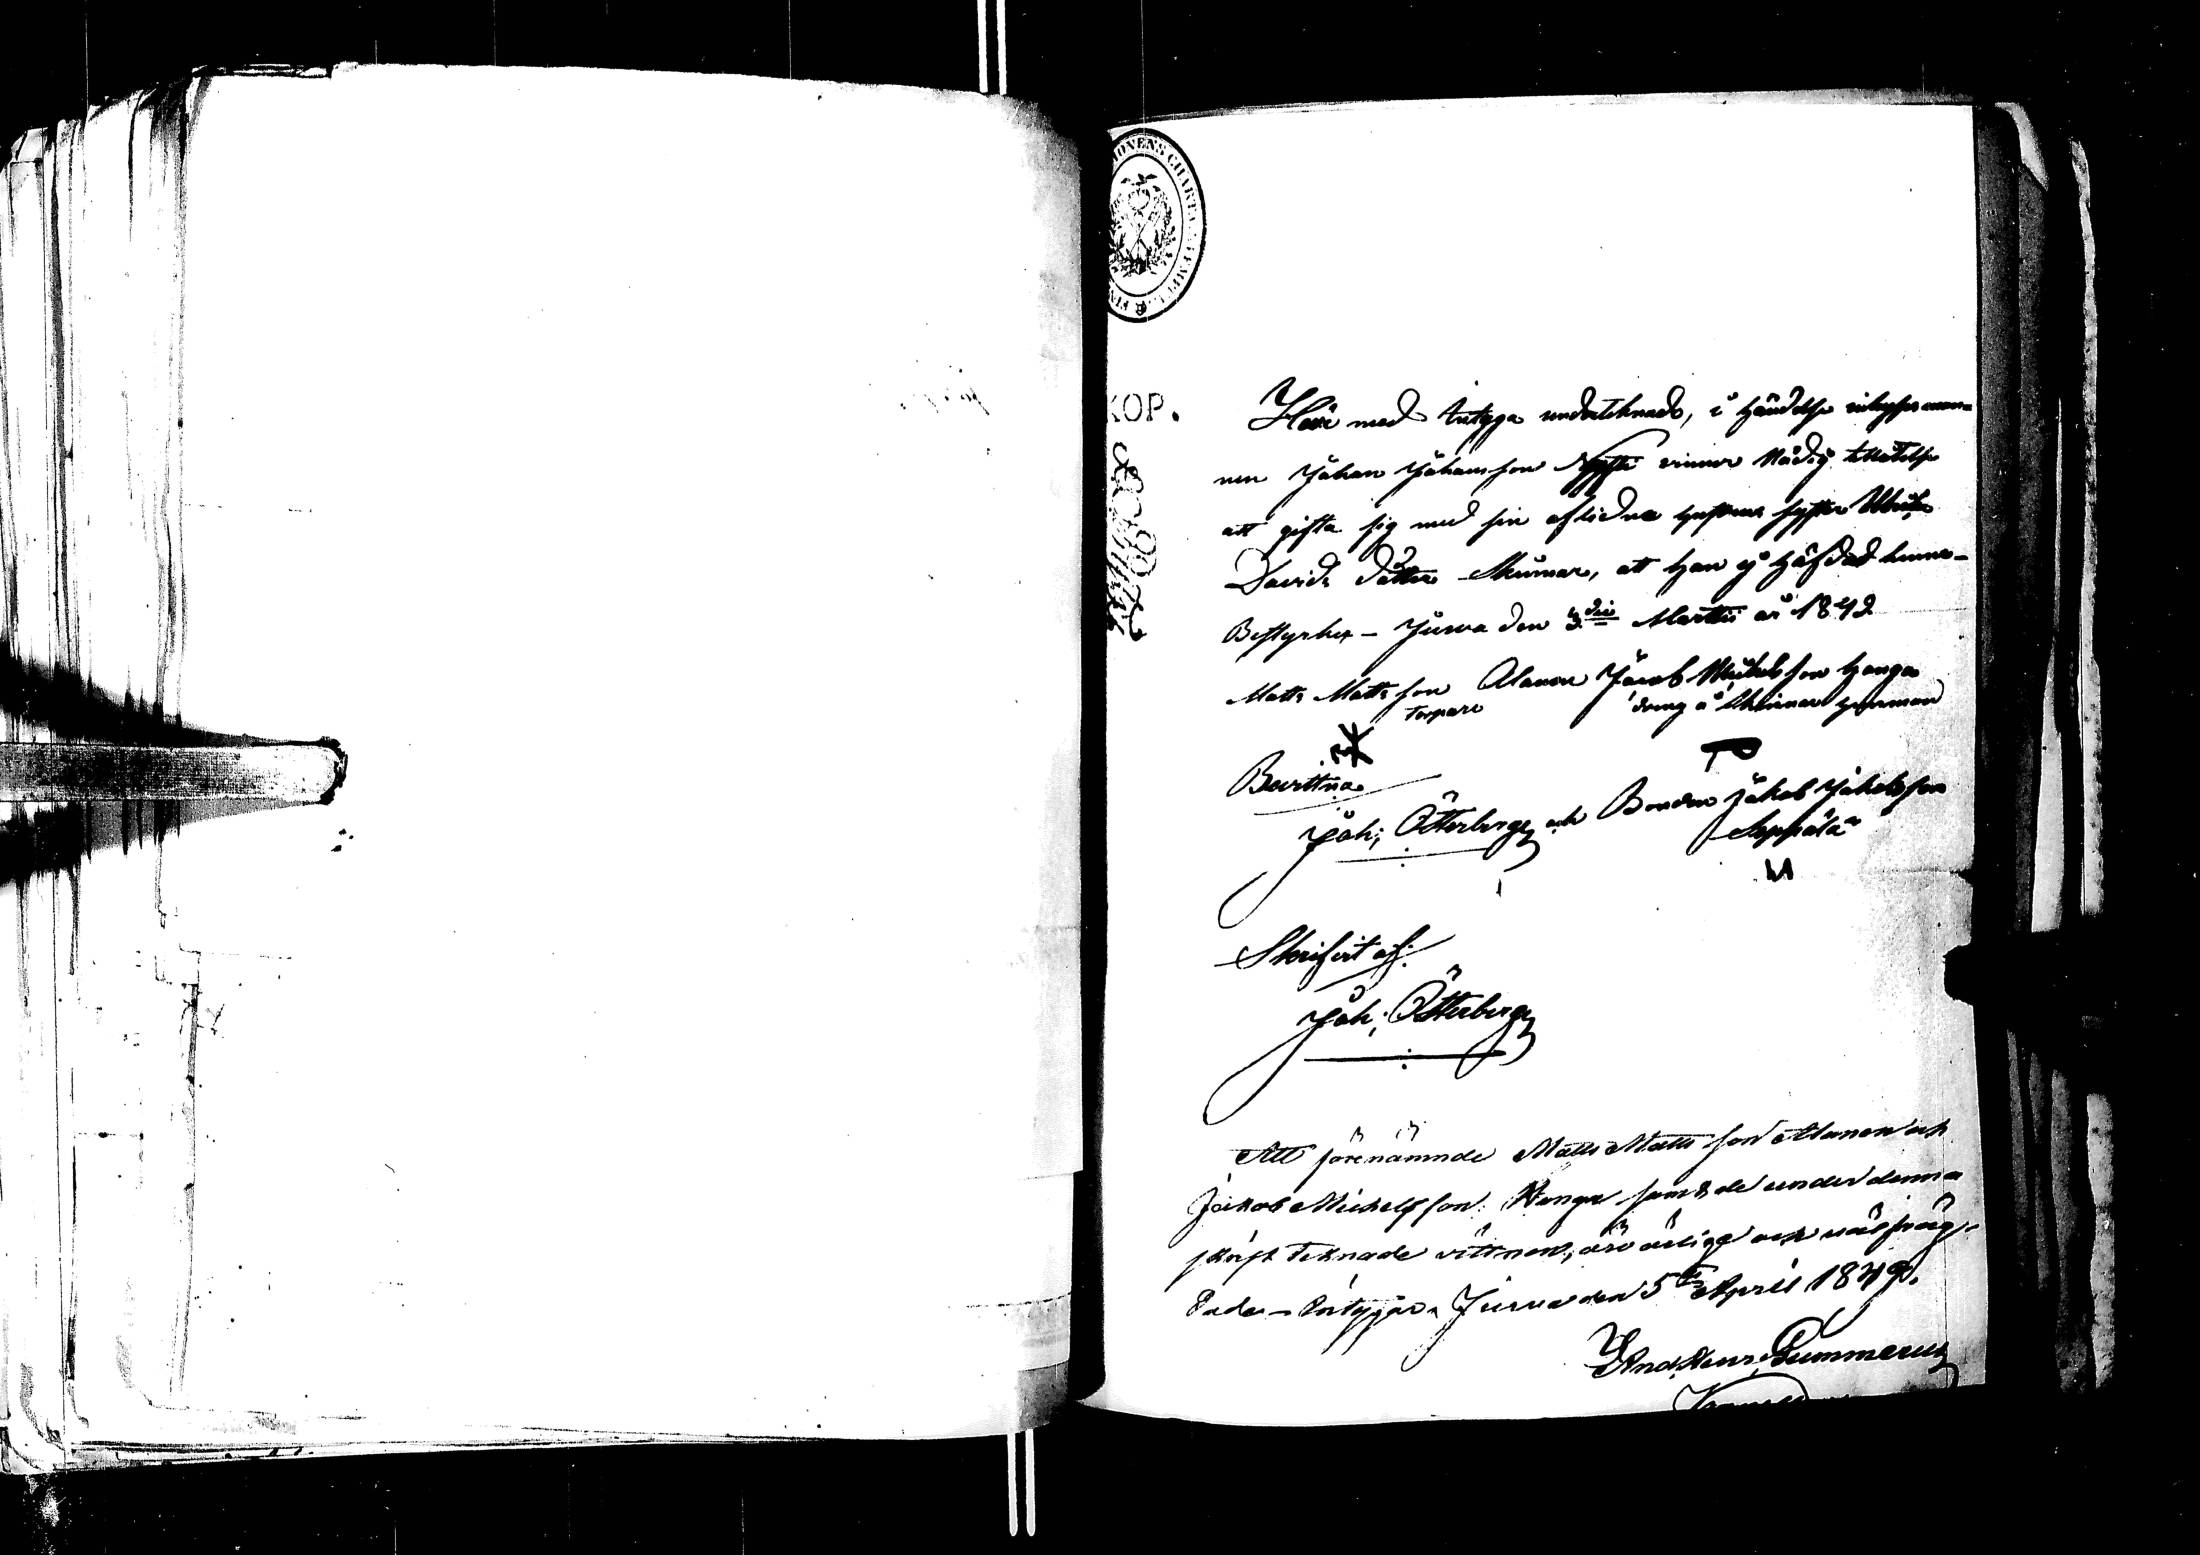 KOP.
Häri med intyga undertecknade, i händelse enkeman-
nen Johan Johansson vinner Nådig tillåtelse
att gifta sig med sin aflidna hustrus syster
Davids dotter Skinnar, att han ej häfdad henne
Bestyrker – Jurva den 3die Martii år 1842
Matts Mattsson Alanen Jacob Michelsson Hanga
torpare dreng å Skinnar hemman
Bevittna
Joh; Österberg och Bonden Jakob Jakobsson
Seppälä
Skrifvit af:
Joh; Österberg
Att förenämnde Matts Mattsson Alanen och
Jakob Michelsson Hanga samt de under denna
skrift teknade vittnen, äro ärlige och väl fräg-
dade – intygar. Jurva den 5te April 1842.
And. Henr. Gummerus